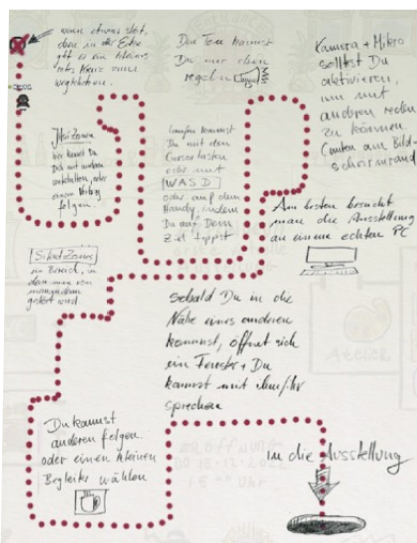 wenn etwas stört,
oben in der Ecke
gibt es ein kleines
rotes Kreuz zum
wegklicken.
Den Ton kannst
Du nur oben
regeln
Kamera + Mikro
solltest Du
aktivieren,
um mit
anderen reden
zu können
(unten am Bild-
schirmrand
hier kannst Du
Dich mit anderen
unterhalten, oder
einem Vortrag
folgen.
laufen kannst
Du mit den
Cursortasten
oder mit
WASD
oder auf dem
Handy, indem
Du auf Dein
Ziel tippst
Am besten besucht
man die Ausstellung
an einem echten PC
Silent Zones
ein Bereich, in
dem man von
niemandem
gestört wird
Sobald Du in die
Nähe eines anderen
kommst, öffnet sich
ein Fenster + Du
kannst mit ihm/ihr
sprechen
Du kannst
anderen folgen.
oder einen kleinen
Begleiter wählen
in die Ausstellung
Atelier
ERÖFFNUNG